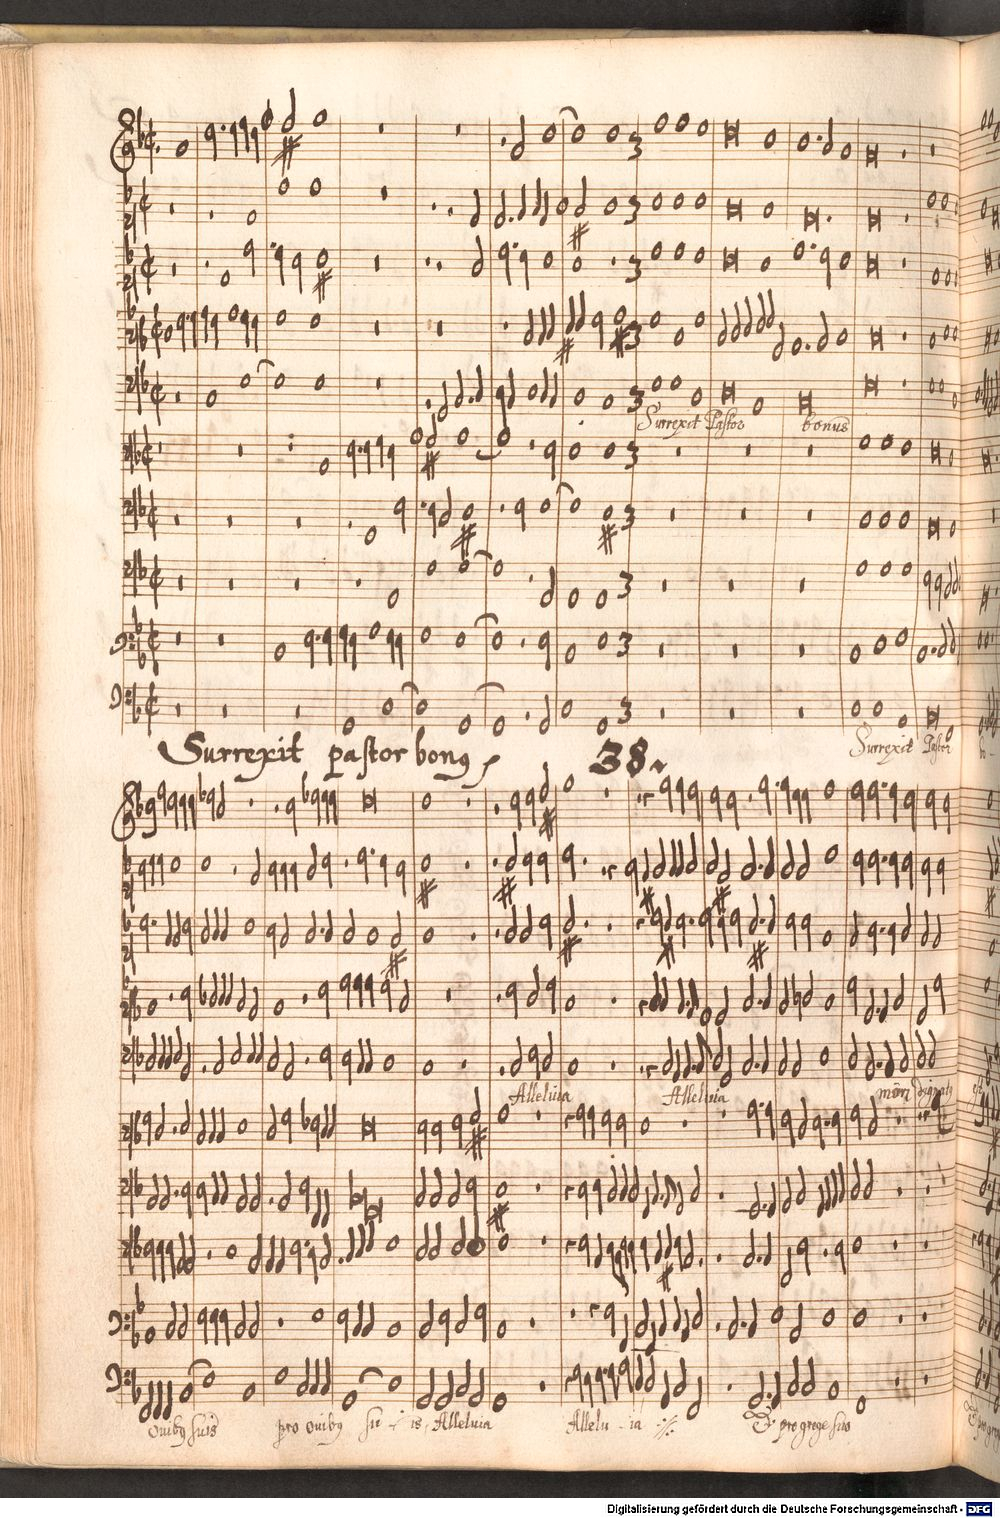 Surrexit Pastor bonus
Surrexit Pastor
Surrexit pastor bonꝯ 38.
Alleluia Alleluia
ovibꝯ suis pro ovibꝯ su - is, Alleluia Allelu - ia :/: Et pro grege suo
Digitalisierung gefördert durch die Deutsche Forschungsgemeinschaft - DFG